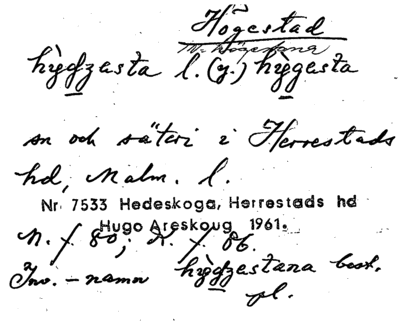 Högestad
hìgdzesta l. (y.) hìggesta
sn och säteri i Herrestads
hd, Malm. l.
Nr 7533 Hedeskoga, Herrestads hd
Hugo Areskoug 1961.
M. f. 80; K. f. 86.
Inv.-namn hìgdzestana best.
pl.